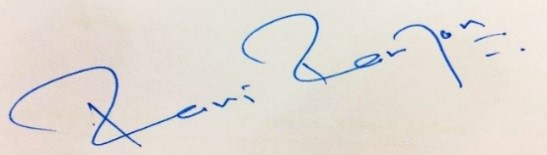 Ravi Ranjan